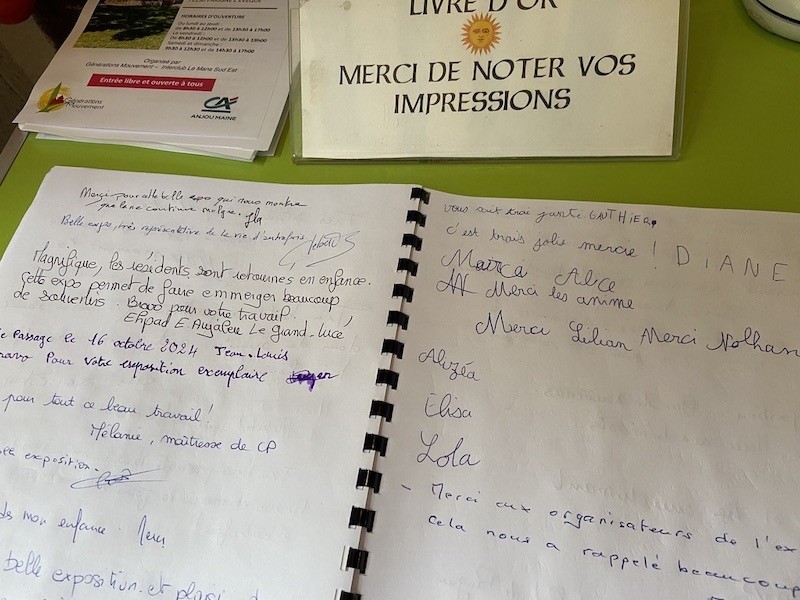 HORAIRES D'OUVERTURE
Du lundi au jeudi :
de 8h30 à 12h00 et de 13h30 à 17h00
Le vendredi :
Samedi et dimanche :
9h30 à 12h30 et de 14h30 à 17h00
Organisé par
Générations Mouvement - Interclub Le Mans Sud Est
Entrée libre et ouverte à tous
Générations
Mouvement
CA
ANJOU MAINE
LIVRE D'OR
MERCI DE NOTER VOS
IMPRESSIONS
Merci pour cette belle expo qui nous montre
que la vie continue malgré
Belle expo, très représentative de la vie d'autrefois
Magnifique, les résidents sont retournés en enfance.
Cette expo permet de faire emmerger beaucoup
de souvenirs. Bravo pour votre travail.
Ehpad Le Grand-Lucé
Passage le 16 octobre 2024 Jean-Louis
Bravo Pour votre exposition exemplaire
pour tout ce beau travail!
Mélanie, maîtresse de CP
exposition.
mon enfance. Merci
belle exposition et plaisir
vous GAUTHIER.
c'est trais jolie mercie ! DIANE
Merci les anime
Merci Lilian Merci Nolhan
Alizéa
Elisa
Lola
- Merci aux organisateurs de l'ex
cela nous a rappelé beaucoup